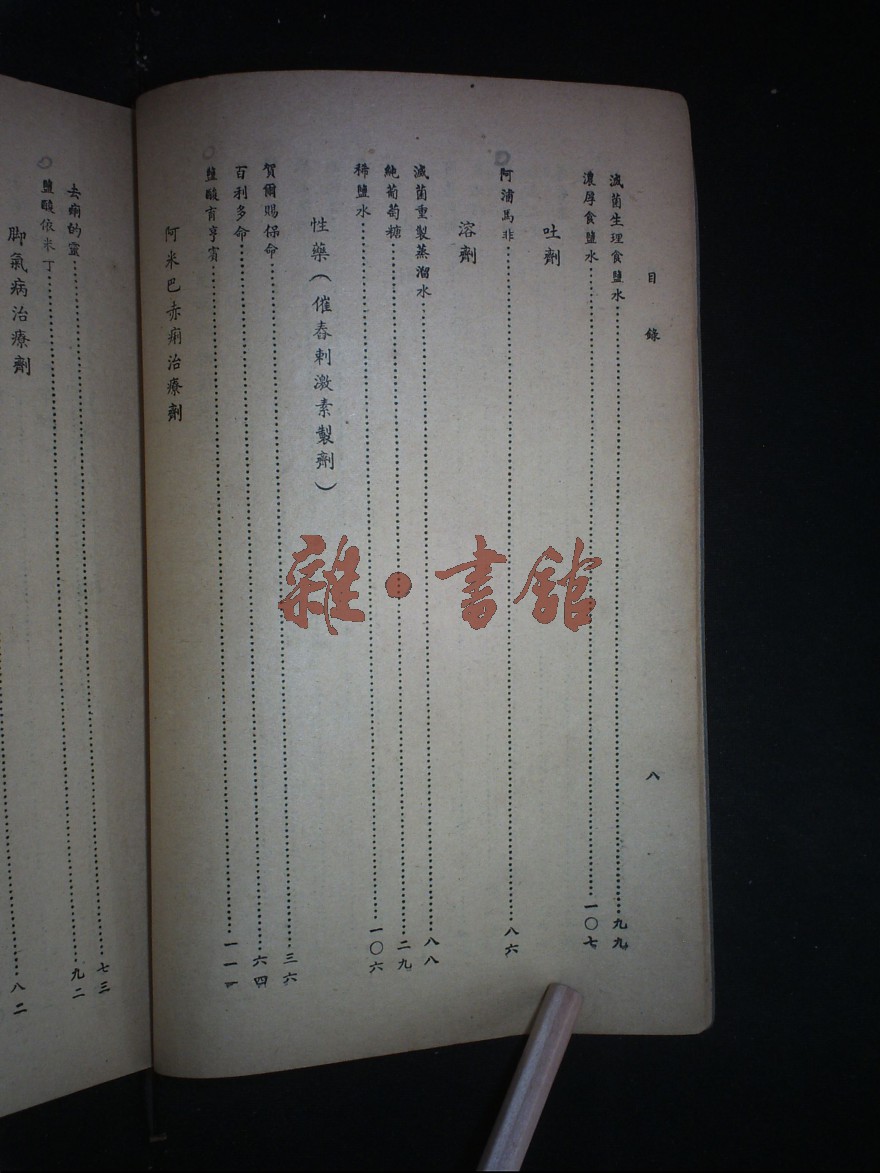 目錄 八
滅菌生理食鹽水……九九
濃厚食鹽水……一〇七
吐劑
阿浦馬非……八六
溶劑
滅菌重製蒸溜水……八八
純葡萄糖……二九
稀鹽水……一〇六
性藥(催春刺激素製劑)
賀爾賜保命……三六
百利多命……六四
鹽酸育亨賓……一一一
阿米巴赤痢治療劑
去痢的靈……七三
鹽酸依米丁……九二
脚氣病治療劑
……八二
雜·書館